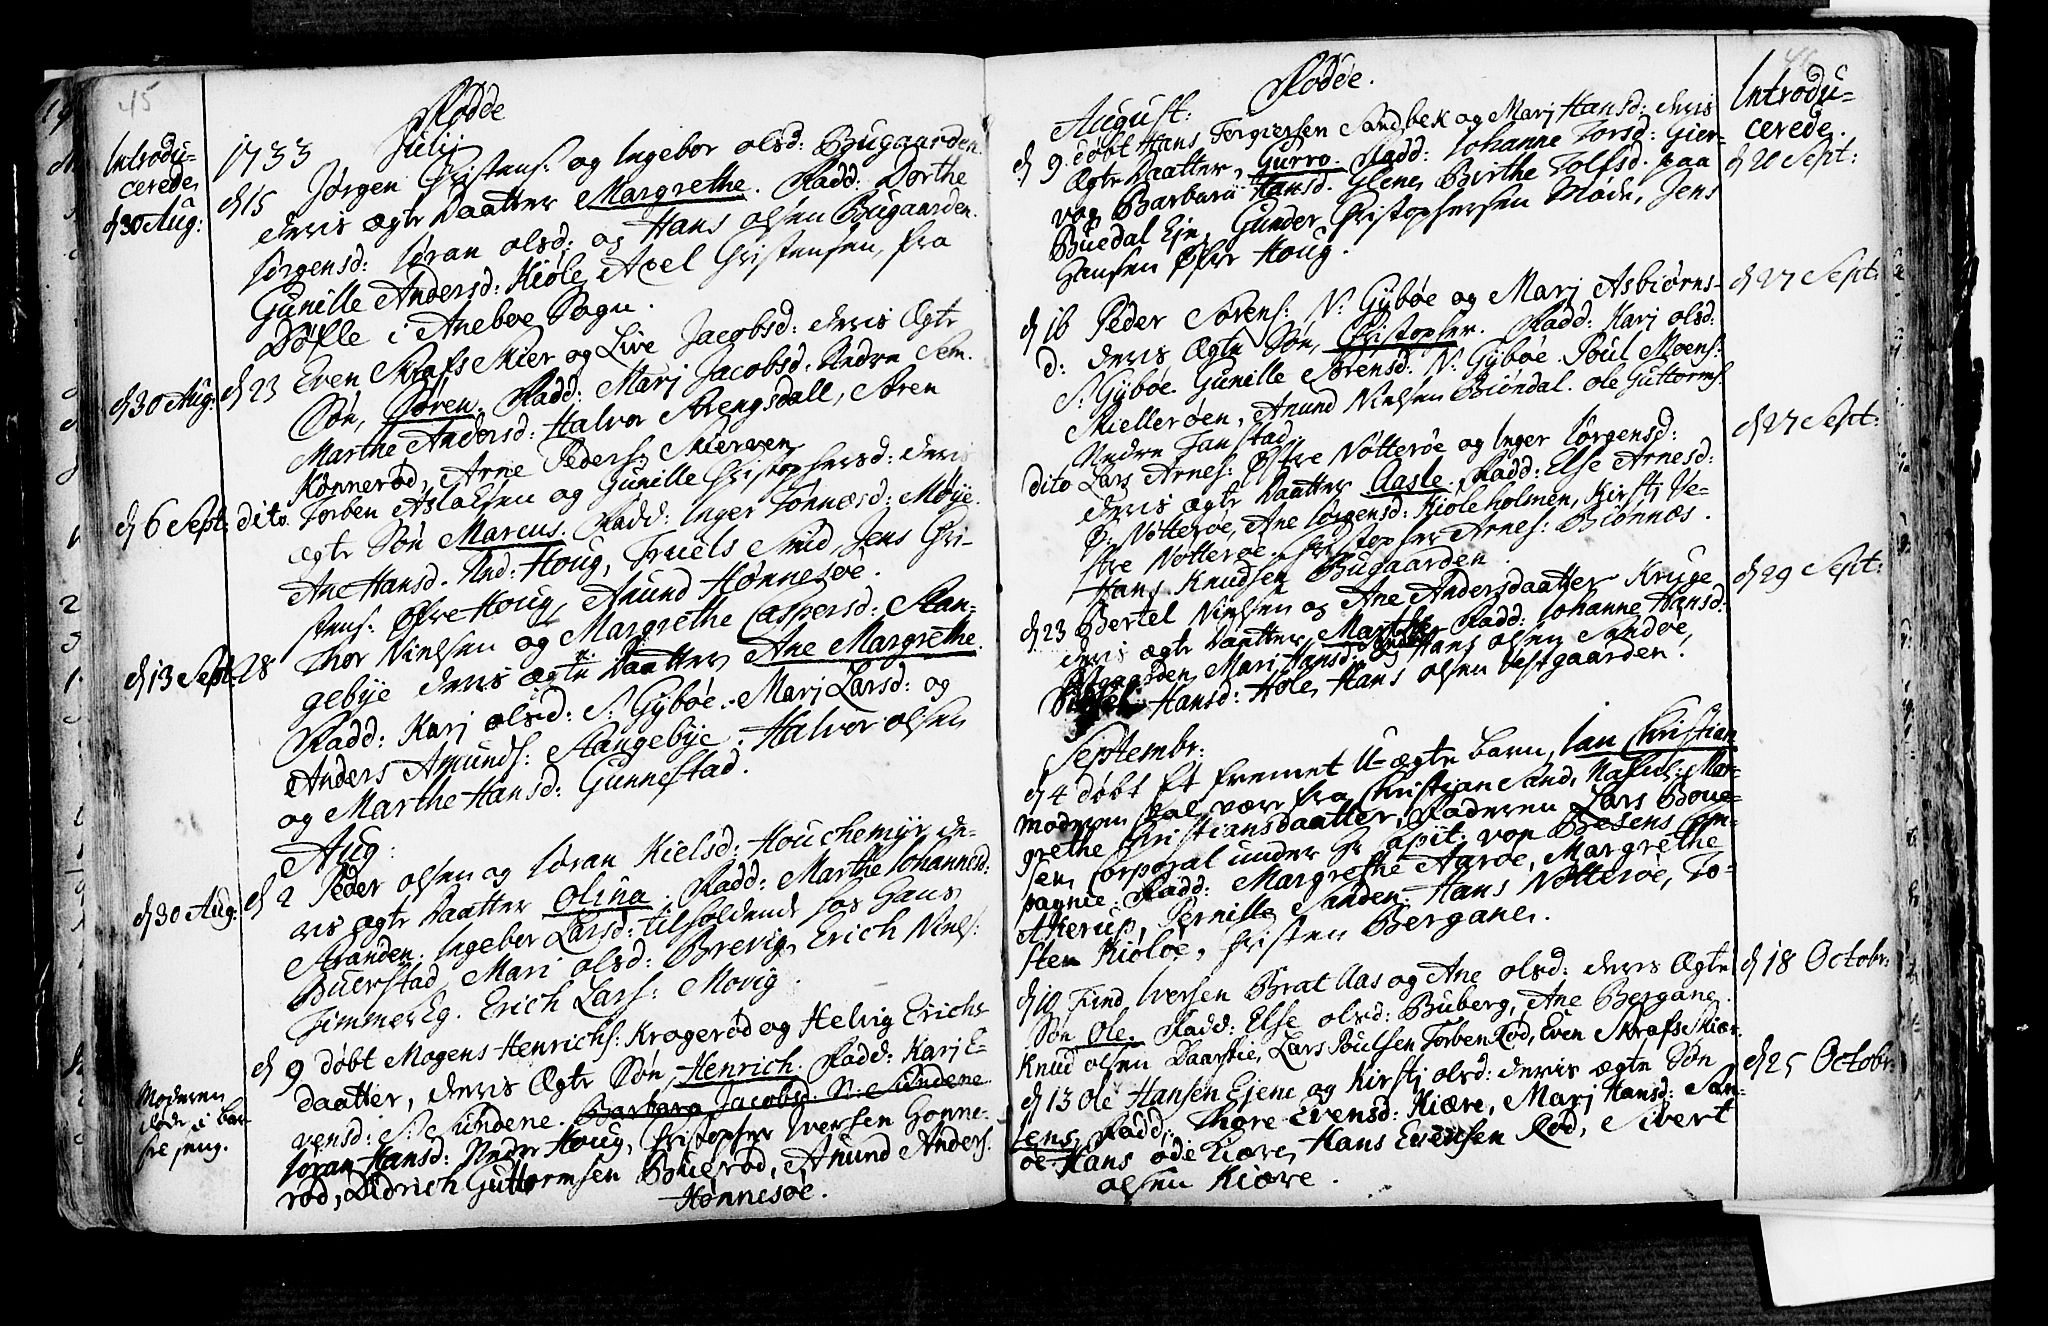 45
Fødde
Introdu-
cerede
1733 Julij
d 30 Aug:
d 15 Jørgen Christens: og Ingebor olsd: Bugaarden.
deris ægte Daatter Margrethe. Fadd: Dorthe
Jørgensd: Jøran olsd: og Hans olsen Bugaarden.
Gunille Andersd: Kiøle, Axel Christensen, fra
i Aneboe Sogn.
d 30 Aug:
d 23 Even Skrafs Kier og Live Jacobsd: deris Ægte
Søn, Søren. Fadd: Marj Jacobsd. Nedre Sem.
Marthe Andersd: Halvor Strengsdall, Søren
Kønnerød, Arne Peders: Skierven
d 6 Sept:
dito. Torben Aslaksen og Gunille Christophersd: deris
ægte Søn Marcus. Fadd: Inger Tønnesd: Møye.
Ane Hansd. Ned: Houg, Truels Smid, Jens Chri-
stens: Øfre Houg, Amund Hønnesøe.
d 13 Sept:
28 Thor Nielsen og Margrethe Caspersd: Slan-
gebye deris ægte Daatter Ane Margrethe.
Fadd: Karj olsd: S: Gybøe. Marj Larsd: og
Anders Amunds: Slangebye. Halvor olsen
og Marthe Hansd: Gunnestad.
Aug:
d 30 Aug:
d 2 Peder olsen og Jøran Kielsd: Houchemyr de-
ris ægte Daatter Olina. Fadd: Marthe Johannesd:
Stranden, Ingebor Larsd: tilholdende hos Hans
Buerstad, Mari olsd: Brevig, Erich Niels:
TimmerEg. Erich Lars: Movig.
d 9 døbt Mogens Henrichs: Kragerød og Helvig Erichs
daatter, deris Ægte Søn, Henrich. Fadd: Karj E-
vensd: S: Sundene. Barbara Jacobsd. N: Sundene.
Jøran Hansd: Nedr Houg, Christopher Iversen Gonne-
rød, Didrich Guttormsen Buerød, Amund Anders:
Hønnesøe.
Moderen
døde i bar-
sel seng.
46
Fødde.
Introdu-
cerede.
August:
d 9 døbt Hans Torgiersen Sandbek og Marj Hansd: deris
Ægte Daatter, Gurro. Fadd: Johanne Torsd: Gier-
vog Barbara Hansd. Glene, Birthe Tolfsd. paa
Buedal Eje, Gunder Christophersen Mode, Jens
Hansen Øfre Houg.
d 20 Sept:
d 16 Peder Sørens: N: Gybøe og Marj Asbiørns-
d: deris Ægte Søn, Christopher. Fadd: Karj olsd:
S: Gybøe. Gunille Sørensd: N: Gybøe. Poul Moens:
Miellerøen, Anund Nielsen Biøndal. Ole Guttorms:
Nedre Tanstad
d 27 Sept:
dito Lars Arnes: Østre Nøtterøe og Inger Jørgensd:
deris ægte Daatter Aasle. Fadd: Else Arnesd:
Ø: Nøtterøe, Ane Jørgensd: Kioleholmen, Kirstj Ve-
stre Nøtterøe. Christopher Arnes: Biønnæs.
Hans Knudsen Bugaarden.
d 27 Sept:
d 23 Bertel Nielsen og Ane Andersdaatter Kruge
deris ægte Daatter, Marthe. Fadd: Johanne Hansd:
Marj Hansd: og Hans olsen Sandøe,
Hansd: Hole, Hans olsen Vestgaarden.
d 29 Sept:
Septembr:
d 4 døbt Et fremet U-ægte barn, Jan Christian
moderen skal være fra Christian Sand, Nafnl: Mar-
grethe Christiansdaatter, Faderen Lars Boue-
sen, Corporal under Hr Capit: von Besens Com-
pagnie. Fadd: Margrethe Aarøe, Margrethe
Afterup, Pernille Sanden, Hans Nøtterøe, To-
sten Kiøløe, Christen Bergane.
d 10 Find Iversen Brat Aas og Ane olsd: deris Ægte
Søn Ole. Fadd: Else olsd: Buberg, Ane Bergane.
Knud olsen Kaarstie, Lars Poulsen Torben Rød, Even Skrafs Kiær.
d 18 Octobr:
d 13 Ole Hansen Ejene og Kirstj olsd: deris ægte Søn
Jens, Fadd: Thore Evensd: Kiære, Marj Hansd: San-
øe Hans øde Kiøre, Hans Evensen Rød, Sivert
olsen Kiære.
d 25 Octobr: